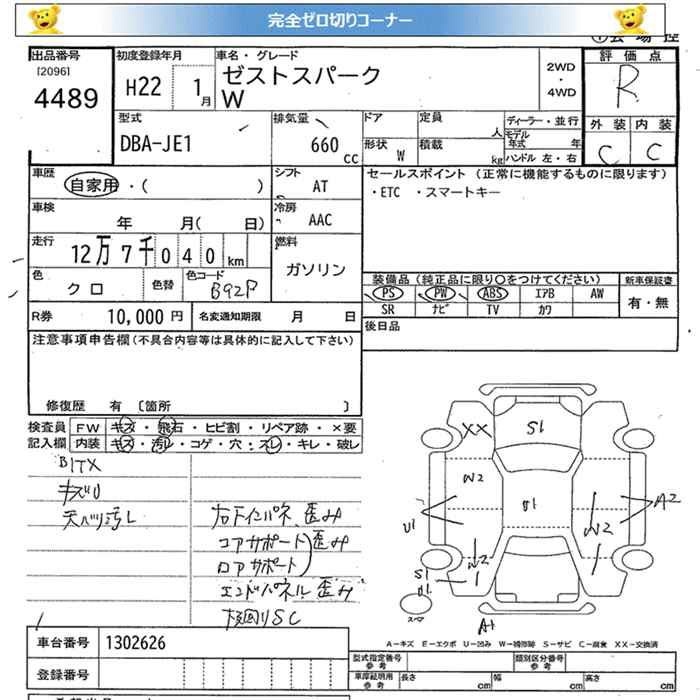 完全ゼロ切りコーナー
出品番号
[2096]
4489
初度登録年月
H22 1月
車名・グレード
ゼストスパーク
W
2WD
・
4WD
評価点
R
外装 内装
C C
型式
DBA-JE1
排気量
660 cc
ドア
定員
人
形状
W
積載
kg
ディーラー・並行
モデル年式 年
ハンドル 左・右
車歴
自家用・( )
シフト
AT
セールスポイント(正常に機能するものに限ります)
・ETC ・スマートキー
車検
年 月( 日)
冷房
AAC
走行
12万7千040km
燃料
ガソリン
色
クロ
色替
色コード
B92P
装備品(純正品に限り○をつけてください)
PS PW ABS エアB AW
SR ナビ TV カワ
新車保証書
有・無
R券
10,000円
名変通知期限 月 日
後日品
注意事項申告欄(不具合内容等は具体的に記入して下さい)
修復歴 有 〔箇所 〕
検査員記入欄
FW キズ・飛石・ヒビ割・リペア跡・×要
内装 キズ・汚レ・コゲ・穴・スレ・キレ・破レ
BITX
キズU
天バリ汚レ
右下インパネ、歪み
コアサポート歪み
ロアサポート
エンドパネル歪み
板回りSC
XX
S1
W2
U1
U1
W2
A2
W2
S1
U1
スペア
A1
A-キズ E-エクボ U-凹み W-補修跡 S-サビ C-腐食 XX-交換済
車台番号
1302626
登録番号
型式指定番号
参考
類別区分番号
参考
車庫証明用
参考
長さ cm
幅 cm
高さ cm